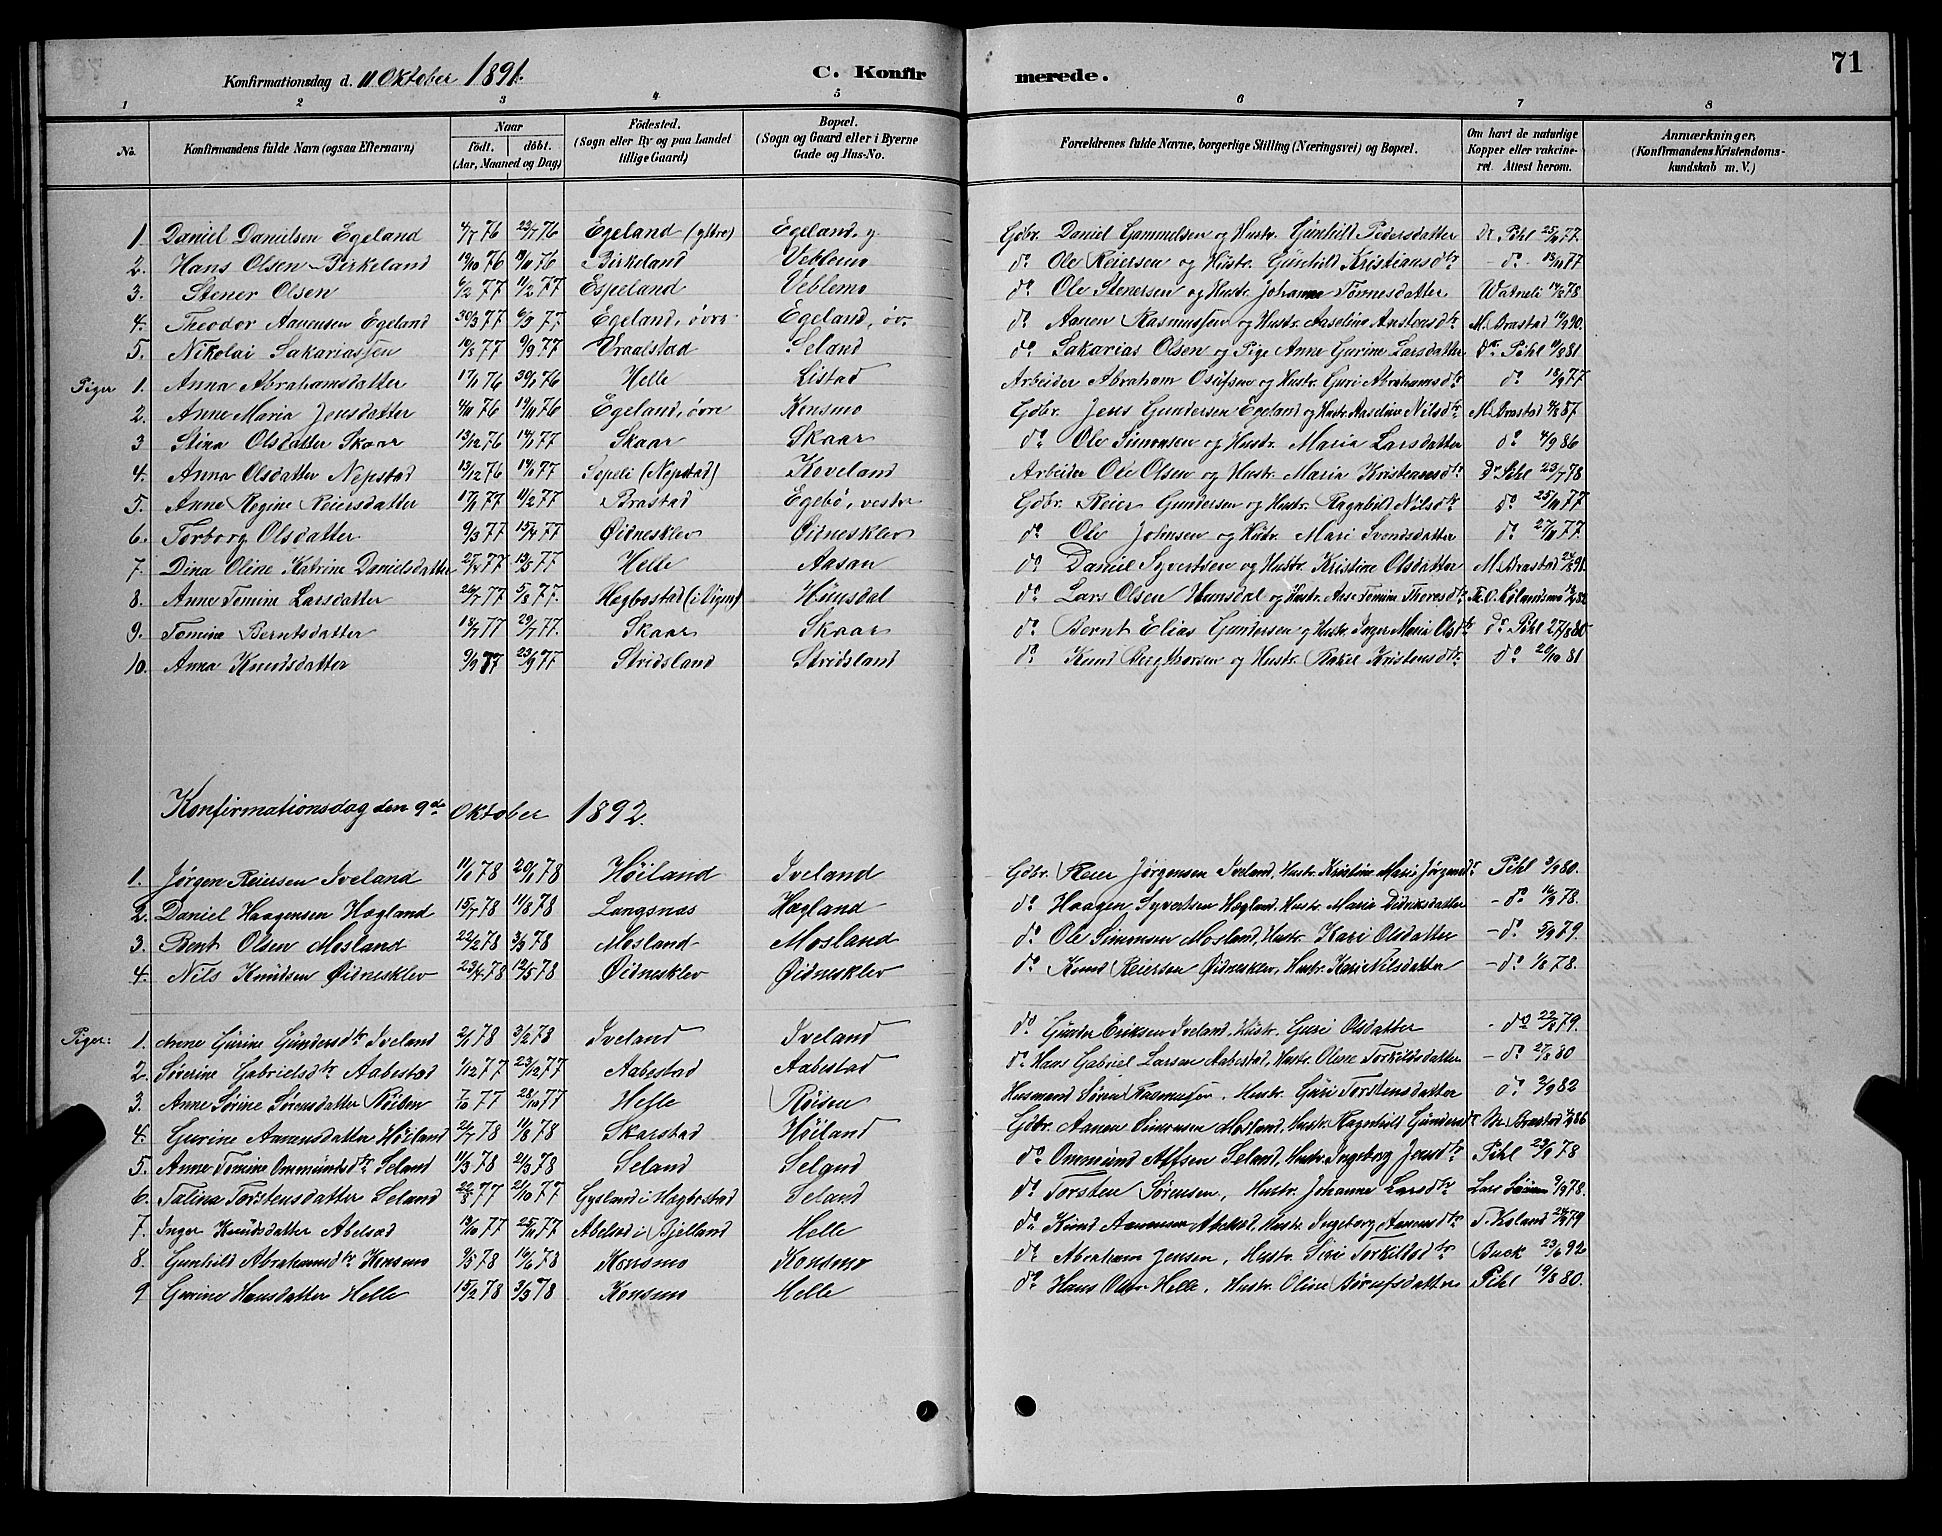 Konfirmationsdag d. 11 Oktober 1891.
C. Konfirmerede.
71
1 2 3 4 5 6 7 8
No. Konfirmandens fulde Navn (ogsaa Efternavn) Naar födt. döbt. (Aar, Maaned og Dag) Födested. (Sogn eller By og paa Landet tillige Gaard) Bopæl. (Sogn og Gaard eller i Byerne Gade og Hus-No.) Forældrenes fulde Navne, borgerlige Stilling (Næringsvei) og Bopæl. Om havt de naturlige Kopper eller vakcineret. Attest herom. Anmærkninger. (Konfirmandens Kristendomskundskab m. V.)
1. Daniel Danielsen Egeland 4/7 76 23/7 76 Egeland (ytre) Egeland, y Gdbr. Daniel Gammelsen og Hustr. Gunhild Pedersdatter Dr. Pihl 77
2. Hans Olsen Birkeland 19/10 76 76 Birkeland Veblemo do Ole Reiersen og Hustr. Gunhild Kristiansdtr - do - 77
3. Stener Olsen 6/2 77 11/2 77 Espeland Veblemo do Ole Stenersen og Hustr. Johanne Tönnesdatter Watneli 78
4. Theodor Aanensen Egeland 77 77 Egeland, övre Egeland, öv. do Aanen Rasmussen og Hustr. Aaseline Anstensdtr M. Brastad 90.
5. Nikolai Sakariassen 77 9/9 77 Vraalstad Seland do Sakarias Olsen og Pige Anne Gurine Larsdatter Dr. Pihl 81
Piger 1. Anna Abrahamsdatter 76 76 Helle Listad Arbeider Abraham Osufsen og Hustr. Guri Abrahamsdtr do 77
2. Anne Maria Jensdatter 76 76 Egeland, övre Konsmo Gdbr. Jens Gundersen Egeland og Hustr. Aaseline Nilsdtr M. Brastad 87
3 Stina Olsdatter Skaar 13/12 76 14/1 77 Skaar Skaar do Ole Simonsen og Hustr. Maria Larsdatter do 4/9 86
4. Anna Olsdatter Nepstad 13/12 76 77 Sopeli (Nepstad) Koveland Arbeider Ole Olsen og Hustr. Maria Kristensdtr Dr Pihl 23/7 78
5. Anne Regine Reiersdatter 77 11/2 77 Brastad Egebö, vestr Gdbr. Reier Gundersen og Hustr. Ragnhild Nilsdtr do 77
6. Torborg Olsdatter 9/3 77 15/4 77 Øidnesklev Øidnesklev do Ole Johnsen og Hustr. Mari Svendsdatter do 77
7. Dina Oline Katrine Danielsdatter 77 13/5 77 Helle Aasan do Daniel Syvertsen og Hustr. Kristine Olsdatter M. Brastad 91
8. Anne Tomine Larsdatter 26/7 77 5/8 77. Hægbostad Hunsdal do Lars Olsen Hunsdal og Hustr. Ase Tomine Thoresdtr 82
9. Tomine Berntsdatter 18/7 77 29/7 77. Skaar Skaar do Bernt Elias Gundersen og Hustr. Inger Maria Olsdtr Dr. Pihl 27/8 80
10. Anna Knudsdatter 9/9 77 23/9 77 Stridsland Stridsland do Knud Bergthorsen og Hustr. Rakel Kristensdtr. do 20/10 81
Konfirmationsdag den 9de Oktober 1892.
1. Jørgen Reiersen Iveland 11/1 78 20/1 78 Höiland Iveland Gdbr. Reier Jørgensen Iveland, Hustr. Kristine Marie Jörgensdr Pihl 80.
2. Daniel Haagensen Høgland 15/7 78 11/8 78 Langsnæs Høgland do Haagen Syvertsen Høgland, Hustr. Maria Didriksdatter - do 78.
3. Bent Olsen Mosland 22/2 78 3/3 78 Mosland Mosland do Ole Simonsen Mosland, Hustr. Kari Olsdatter - do 79.
4. Nils Knudsen Øidnesklev 23/4 78 12/5 78 Øidnesklev Øidnesklev do Knud Reiersen Øidnesklev, Hustr. Kari Nilsdatter - do 1/8 78.
Piger: 1. Anne Gurine Gundersdtr Iveland 2/1 78 3/2 78 Iveland Iveland do Gunder Eriksen Iveland, Hustr. Guri Olsdatter - do 79.
2. Severine Gabrielsdtr Aabestad 1/12 77 23/12 77 Aabestad Aabestad do Hans Gabriel Larsen Aabestad, Hustr. Olene Torkildsdatter - do 80
3. Anne Sörine Sørensdatter Röisen 7/10 77 28/10 77 Helle Röisen Husmand Sören Rasmussen, Hustr. Guri Torstensdatter do 82
4. Gurine Aanensdatter Höiland 78 11/8 78 Skarstad Höiland Gdbr. Aanen Simonsen Mosland, Hustr. Ragnhild Gundersdr M. Brastad 86
5. Anne Tomine Ommundsdtr Seland 11/3 78 24/3 78 Seland Selgnd do Ommund Alfsen Seland, Hustr. Ingeborg Jensdtr Pihl 78
6. Talina Torstensdatter Seland 77 77 Gysland i Hægbostad Seland do Torsten Sørensen, Hustr. Johanne Larsdtr 78.
7. Inger Knudsdatter Abelsæd 77 77 Abelsæd i Bjelland Helle do Knud Aanensen Hustr. Ingeborg Aanensdtr T. Koland 79
8. Gunhild Abrahamsdtr Konsmo 78 16/6 78 Konsmo Konsmo do Abraham Jensen, Hustr. Siri Torkildsdtr Buck 23/6 92
9 Gurine Hansdatter Helle 15/2 78 3/3 78 Konsmo Helle do Hans Olsen Helle, Hustr. Oline Börufsdatter Pihl 19/8 80.